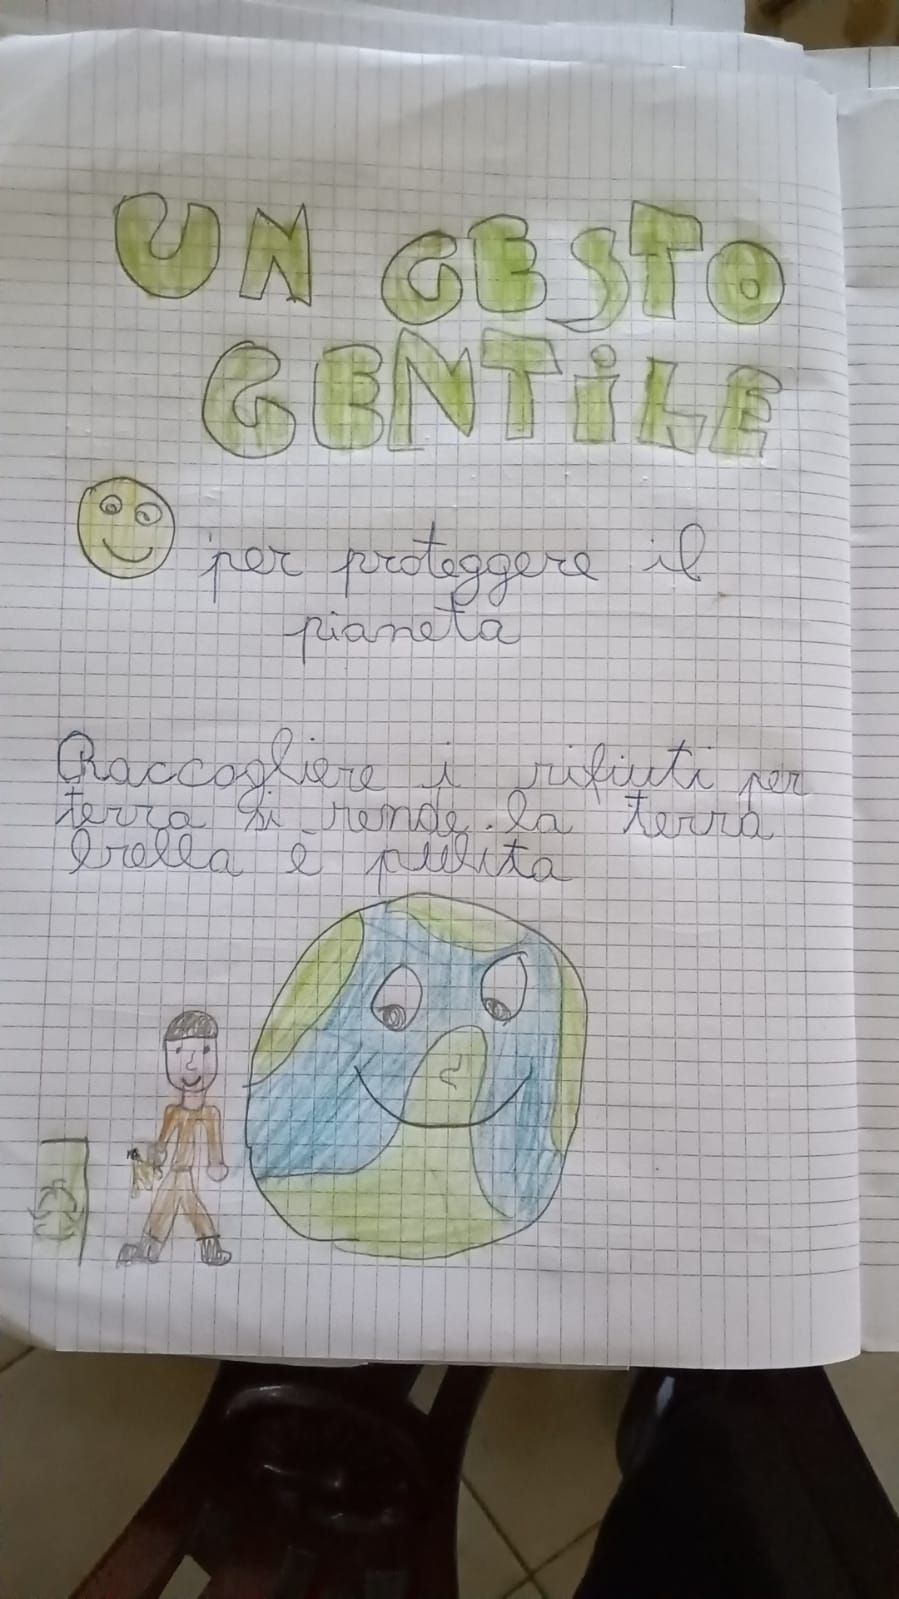 UN GESTO
GENTiLE
per proteggere il
pianeta
Raccogliere i rifiuti per
terra si rende la terra
bella e pulita